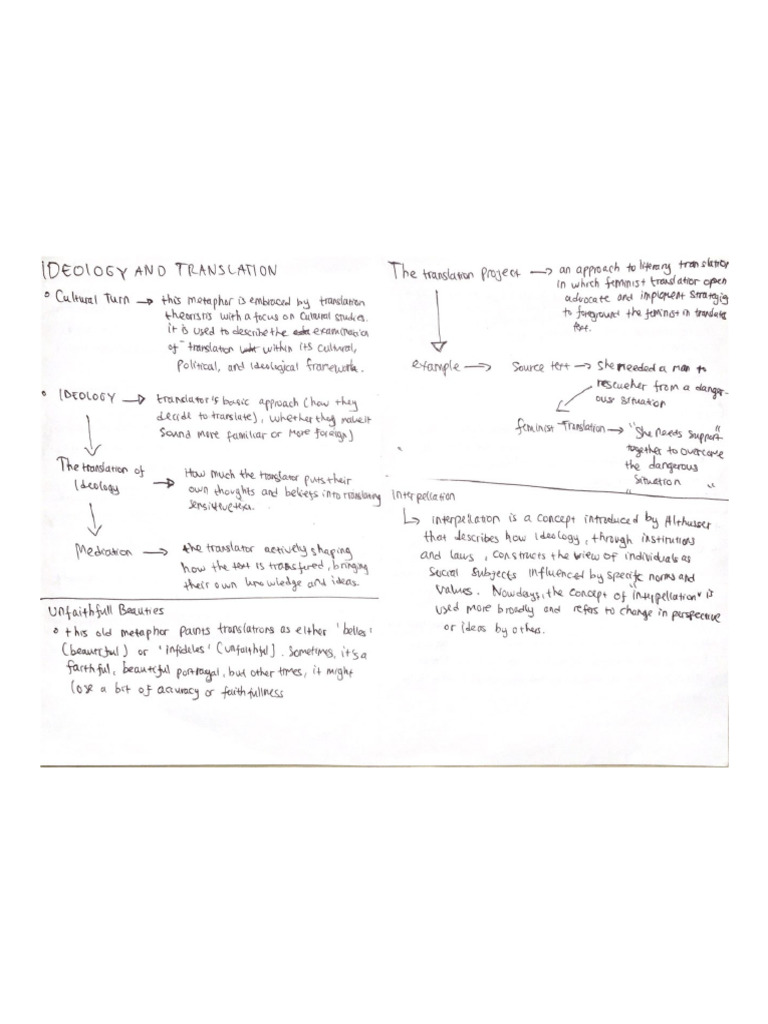 IDEOLOGY AND TRANSLATION
Cultural Turn → this metaphor is embraced by translation
theorists with a focus on Cultural studies.
it is used to describe the examination
of translation within its cultural,
Political, and ideological framework.
IDEOLOGY → translator's basic approach (how they
decide to translate), whether they make it
sound more familiar or more foreign)
The translation of
Ideology → How much the translator puts their
own thoughts and beliefs into translating
sensitive texs.
Mediation → the translator actively shaping
how the text is transfered, bringing
their own knowledge and ideas.
Unfaithfull Beauties
this old metaphor paints translations as either 'belles'
(beautiful) or 'infideles' (unfaithful). Sometimes, it's a
faithful, beautiful portrayal, but other times, it might
lose a bit of accuracy or faithfullness
The translation Project → an approach to literary translation
in which feminist translatior open
advocate and implement strategis
to foreground the feminist in translate
text.
example → Source text → She needed a man to
rescue her from a danger-
ous situation
feminist Translation → "She needs support"
together to overcome
the dangerous
situation "
Interpellation
↳ interpellation is a concept introduced by Althusser
that describes how ideology, through institutions
and laws, constructs the view of individuals as
social subjects influenced by specific norms and
values. Nowdays, the concept of "interpellation" is
used more broadly and refers to change in perspective
or ideas by others.